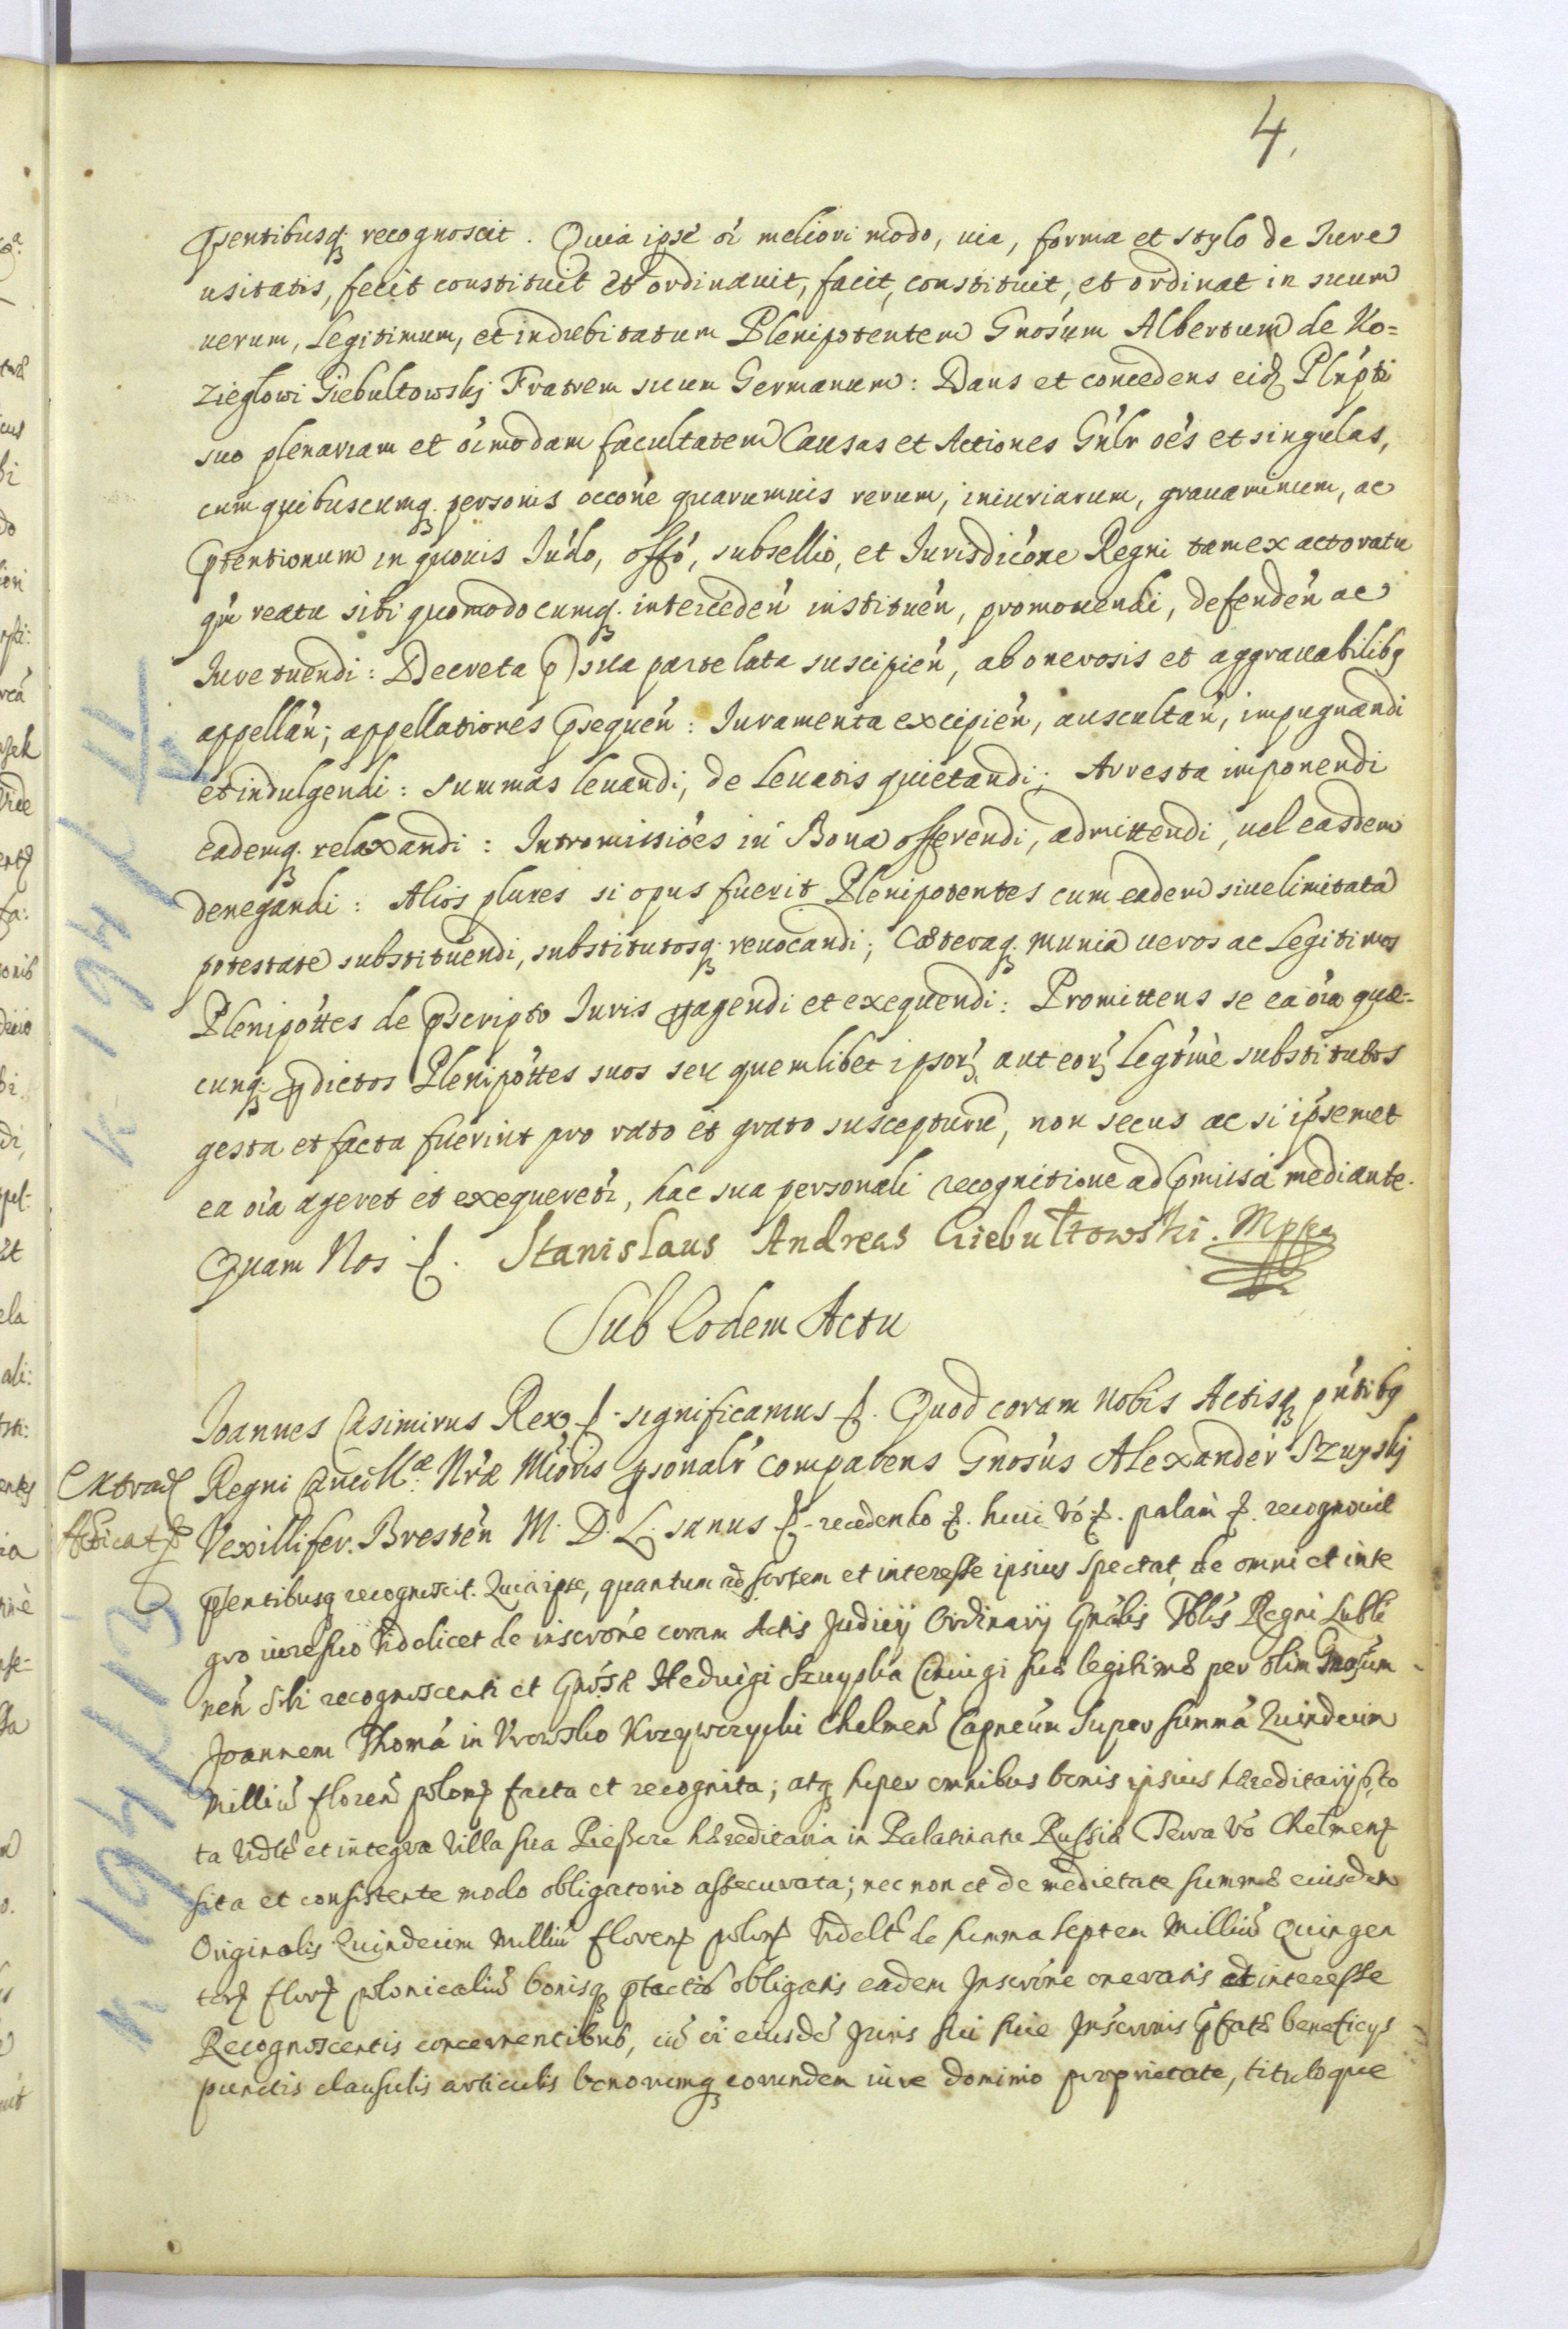 4.
Pñtibusq recognoscit. Quia ipse oi meliori modo, via, forma et stylo de Jure
usitatis, fecit constituit et ordinavit, facit, constituit, et ordinat in suum
verum, Legitimum, et indubitatum Plenipotentem Gnosum Albertum de Ko=
zieglowi Giebultowskj Fratrem suum Germanum: Dans et concedens eidē Plnpti
suo plenariam et oimodam facultatem Causas et Actiones Gnlr oēs et singulas,
cum quibuscumq. personis occōne quarumvis rerum, iniuriarum, gravaminum, ac
Ptentionum in quovis Judō, offō, subsellio, et Jurisdicōne Regni tam ex actoratu
qm reatu sibi quomodocumq. interceden instituen, promovendi, defenden ac
Jure tuendi: Decreta p sua parte lata suscipien, ab onerosis et aggravabilibq
appellan; appellationes Psequen: Juramenta excipien, auscultan, impugnandi
et indulgendi: summas levandi, de Levatis quietandi; Arresta imponendi
eademq. relaxandi: Intromissiões in Bona offerendi, admittendi, vel easdem
denegandi: Alios plures si opus fuerit Plenipotentes cum eadem sive limitata
potestate substituendi, substitutosq. revocandi; Cæteraq. munia veros ac Legitimos
Plenipottes de Pscripto Juris pagendi et exequendi: Promittens se ea oia quæ=
cunq. pdictos Plenipottes suos seu quemlibet ipsorʒ aut eorʒ Legtmè substitutos
gesta et facta fuerint pro rato et grato suscepturū, non secus ac si ipsemet
ea oia ageret et exequeretr, hac sua personali recognitione ad Pmissa mediante.
Quam Nos f. Stanislaus Andreas Giebułtowski. Mppa
Sub Eodem Actu
Joannes Casimirus Rex f. significamus f. Quod coram Nobis Actisq pñtibq
Extrad Regni Cancillæ Nræ Mioris psonalr comparens Gnosus Alexander Szuyskj
Vexillifer. Bresten M. D. L. sanus f. recedendo f. huic vō f. palam f. recognovit
Pentibusq recognoscit. Quia ipse, quantum ad sortem et interesse ipsius spectat, de omni et inte
gro iure suo Videlicet de inscrōne coram Actis Judicij Ordinarij Gnalis Tblis Regni Lubli
nen sibi recognoscenti et Gnosæ Hedvigi Szuyska Coniugi suæ legitimæ per olim Gnosum
Joannem Thoma in Krowsko Krzywczycki Chelmen Capneum super summa Quindecim
Milliu floren polonʒ facta et recognita; atq super omnibus bonis ipsius hæreditarijs to
ta Vdlt et integra Villa sua hæreditaria in Palatinatu Russiæ Terra vō Chelmenʒ
sita et consistente modo obligatorio assecurata; nec non et de medietate summæ eiusdem
Originalis Quindecim Milliu florenʒ polonʒ Vdelt de summa septem Milliu Quingen
torʒ florʒ polonicaliu bonisq ptactis obligatis eadem Inscrōne oneratis ad interesse
Recognoscentis concernentibus, cū oi eiusdē Juris sui sive Inscrōnis Pfatæ beneficys
punctis clausulis articulis bonorumq eorundem iure dominio proprietate, tituloque
K 194 K 12
K 194 K 13